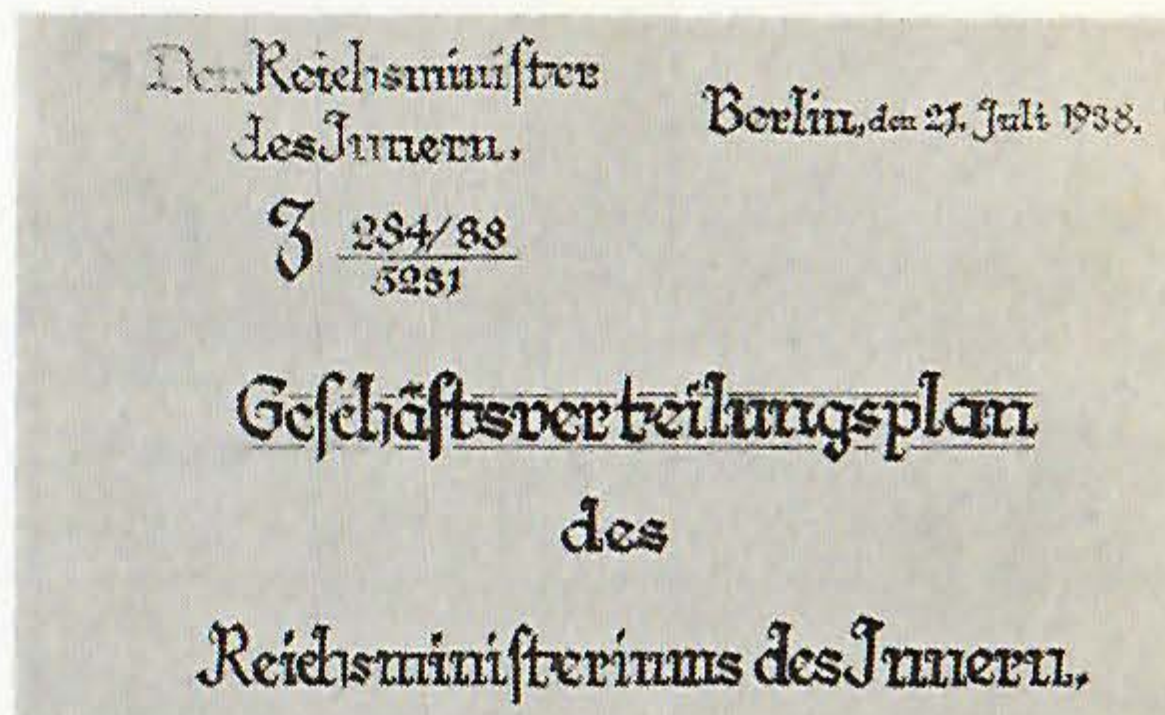 Der Reichsminister
des Innern.
Berlin, den 21. Juli 1938.
Z
Geschäftsverteilungsplan
des
Reichsministeriums des Innern.